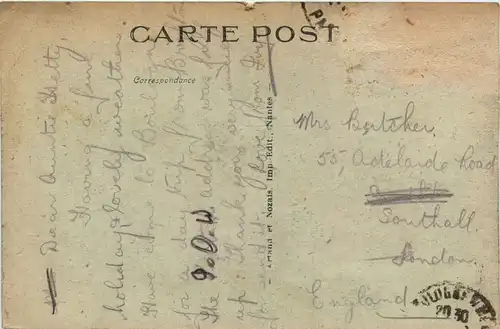 CARTE POSTALE
Correspondance
Dear Auntie Hetty,
Having a fine
holiday & lovely weather
Have come to
for a day trip from
The I.O.W. address was
Thank you very much
for sending it. Love from
Artaud et Nozais. Imp.-Edit., Nantes
Mrs Butcher,
55, Adelaide Road
Southall
London
England
20 30